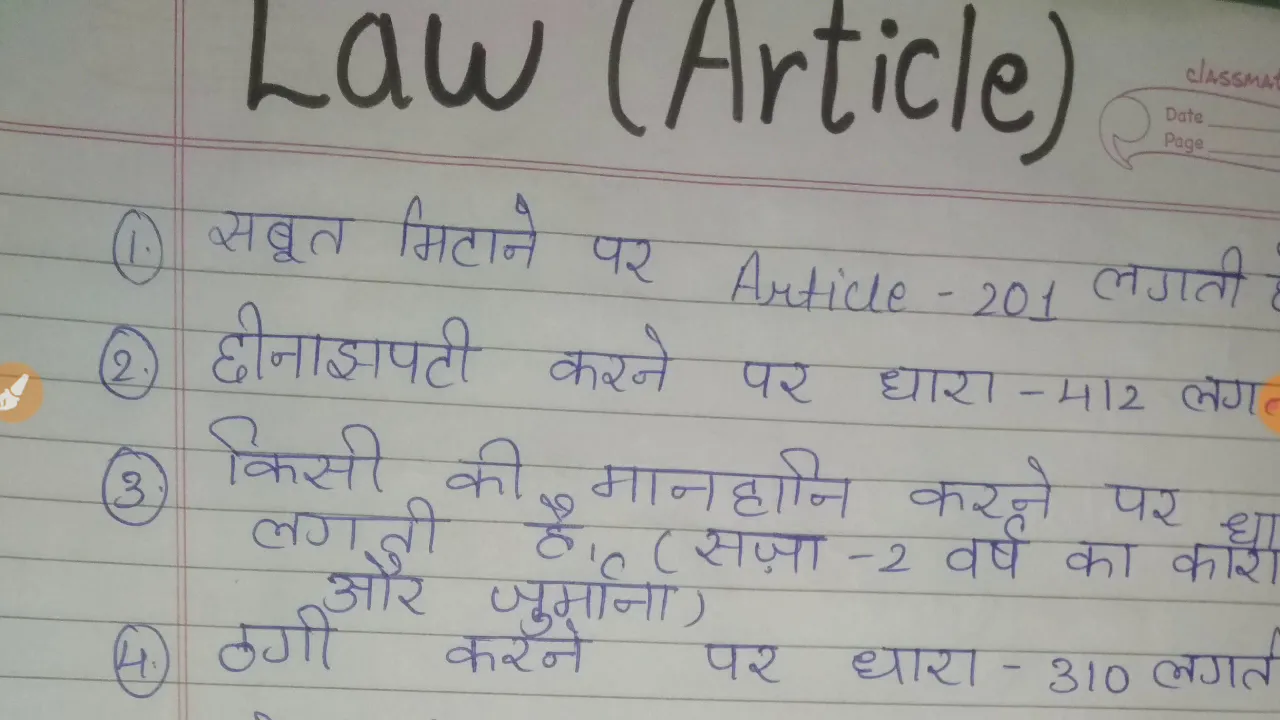 Law (Article)
classmat
Date
Page
1. सबूत मिटाने पर Article - 201 लगती
2. छीनाझपटी करने पर धारा - 412 लगत
3. किसी की मानहानि करने पर धा
लगती है, (सज़ा - 2 वर्ष का कारा
और जुर्माना)
4. ठगी करने पर धारा - 310 लगती